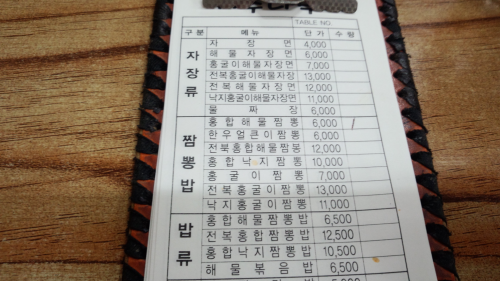 TABLE NO
구분 메뉴 단가 수량
자장류
자장면 4,000
해물자장면 6,000
홍굴이해물자장면 7,000
전복홍굴이해물자장 13,000
전복해물자장면 12,000
낙지홍굴이해물자장면 11,000
물짜장 6,000
짬뽕밥
홍합해물짬뽕 6,000 /
한우얼큰이짬뽕 6,000
전복홍합해물짬뽕 12,000
홍합낙지짬뽕 10,000
홍굴이짬뽕 7,000
전복홍굴이짬뽕 13,000
낙지홍굴이짬뽕 11,000
밥류
홍합해물짬뽕밥 6,500
전복홍합짬뽕밥 12,500
홍합낙지짬뽕밥 10,500
해물볶음밥 6,500